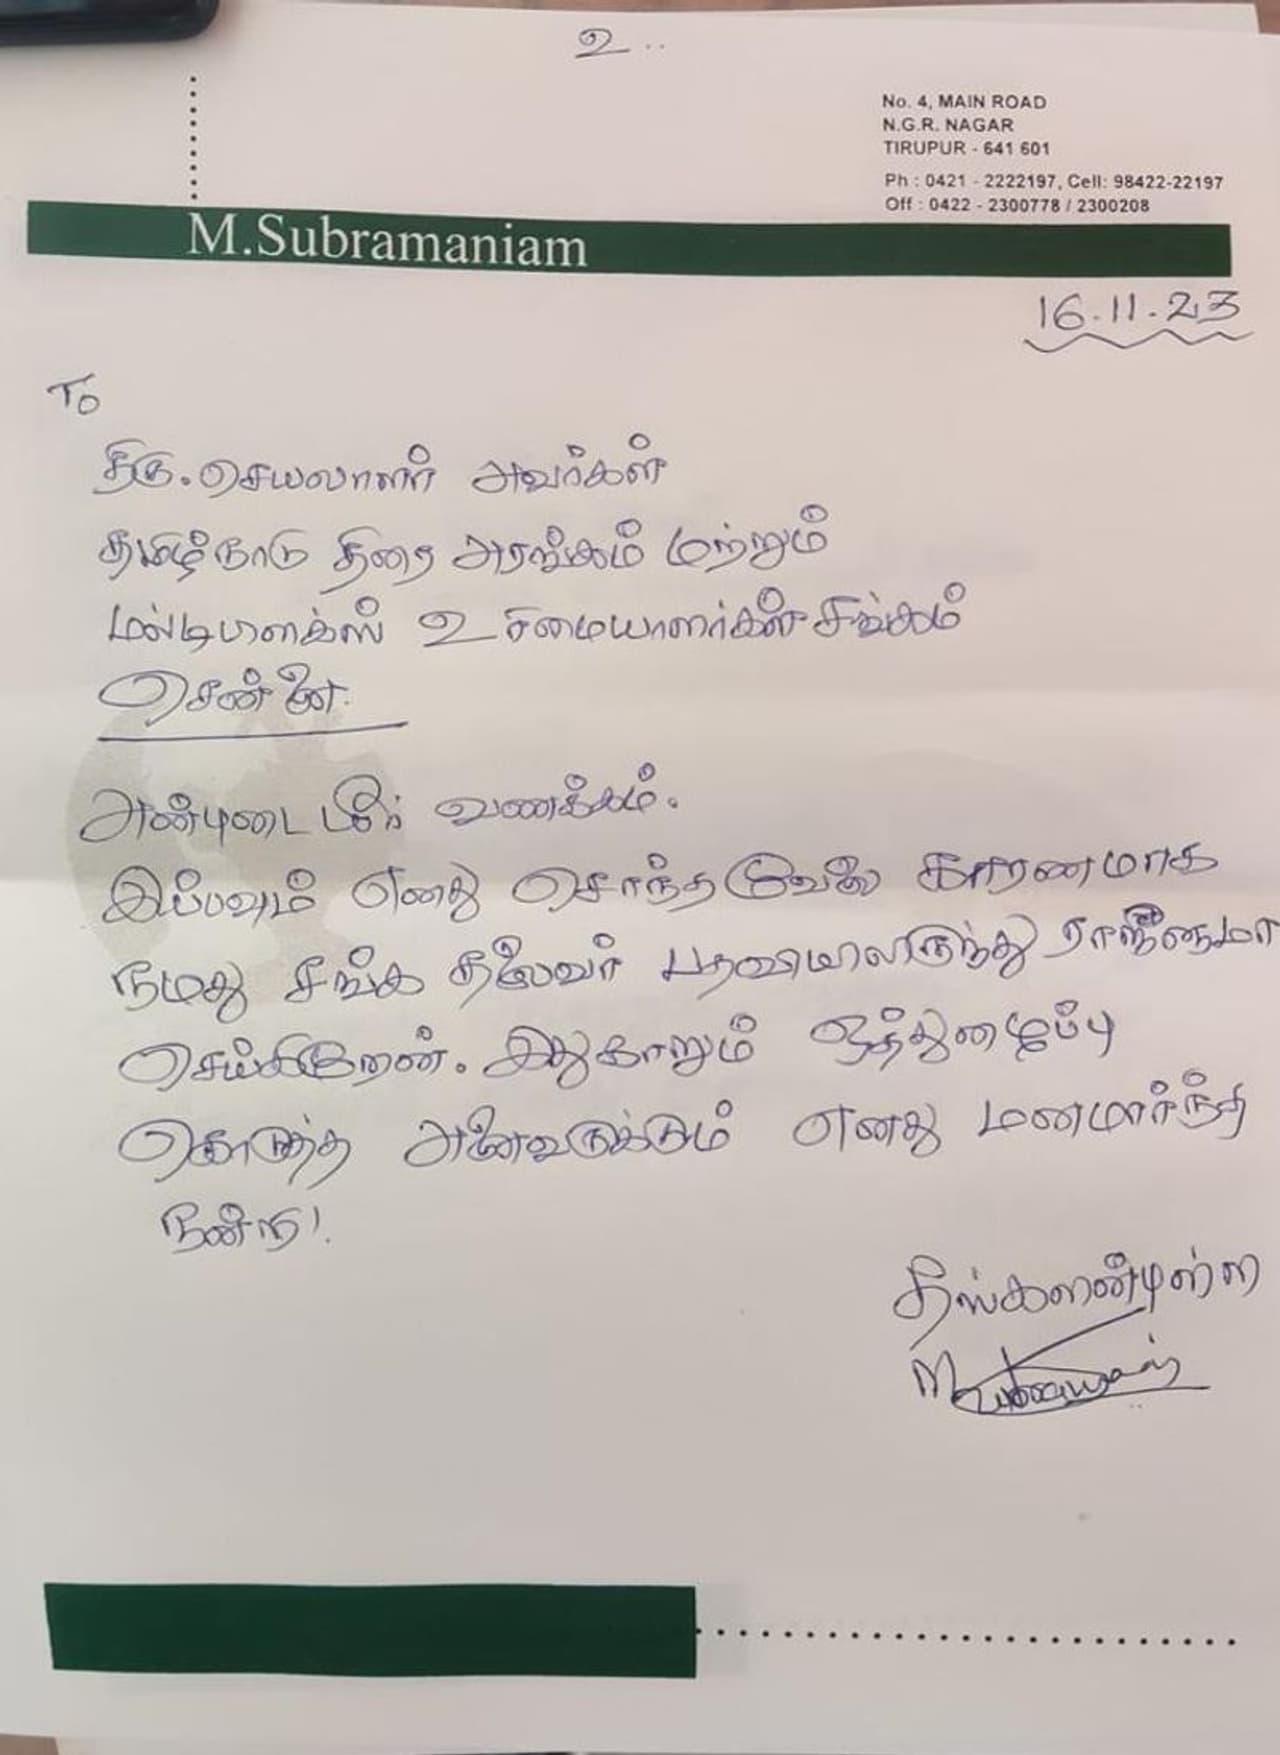 உ..
No. 4, MAIN ROAD
N.G.R. NAGAR
TIRUPUR - 641 601
Ph : 0421 - 2222197, Cell: 98422-22197
Off : 0422 - 2300778 / 2300208
M.Subramaniam
16.11.23
To
திரு. செயலாளர் அவர்கள்
தமிழ்நாடு திரை அரங்கம் மற்றும்
மல்டிபிளக்ஸ் உரிமையாளர்கள் சங்கம்
சென்னை
அன்புடையீர் வணக்கம்.
இப்பவும் எனது சொந்த வேலை காரணமாக
நமது சங்க தலைவர் பதவியிலிருந்து ராஜினாமா
செய்கிறேன். இதுகாறும் ஒத்துழைப்பு
கொடுத்த அனைவருக்கும் எனது மனமார்ந்த
நன்றி!